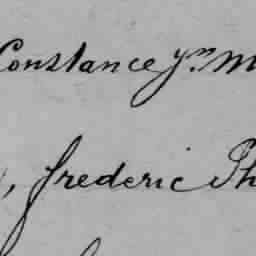 Constance Jm. M
, Frederic Ph